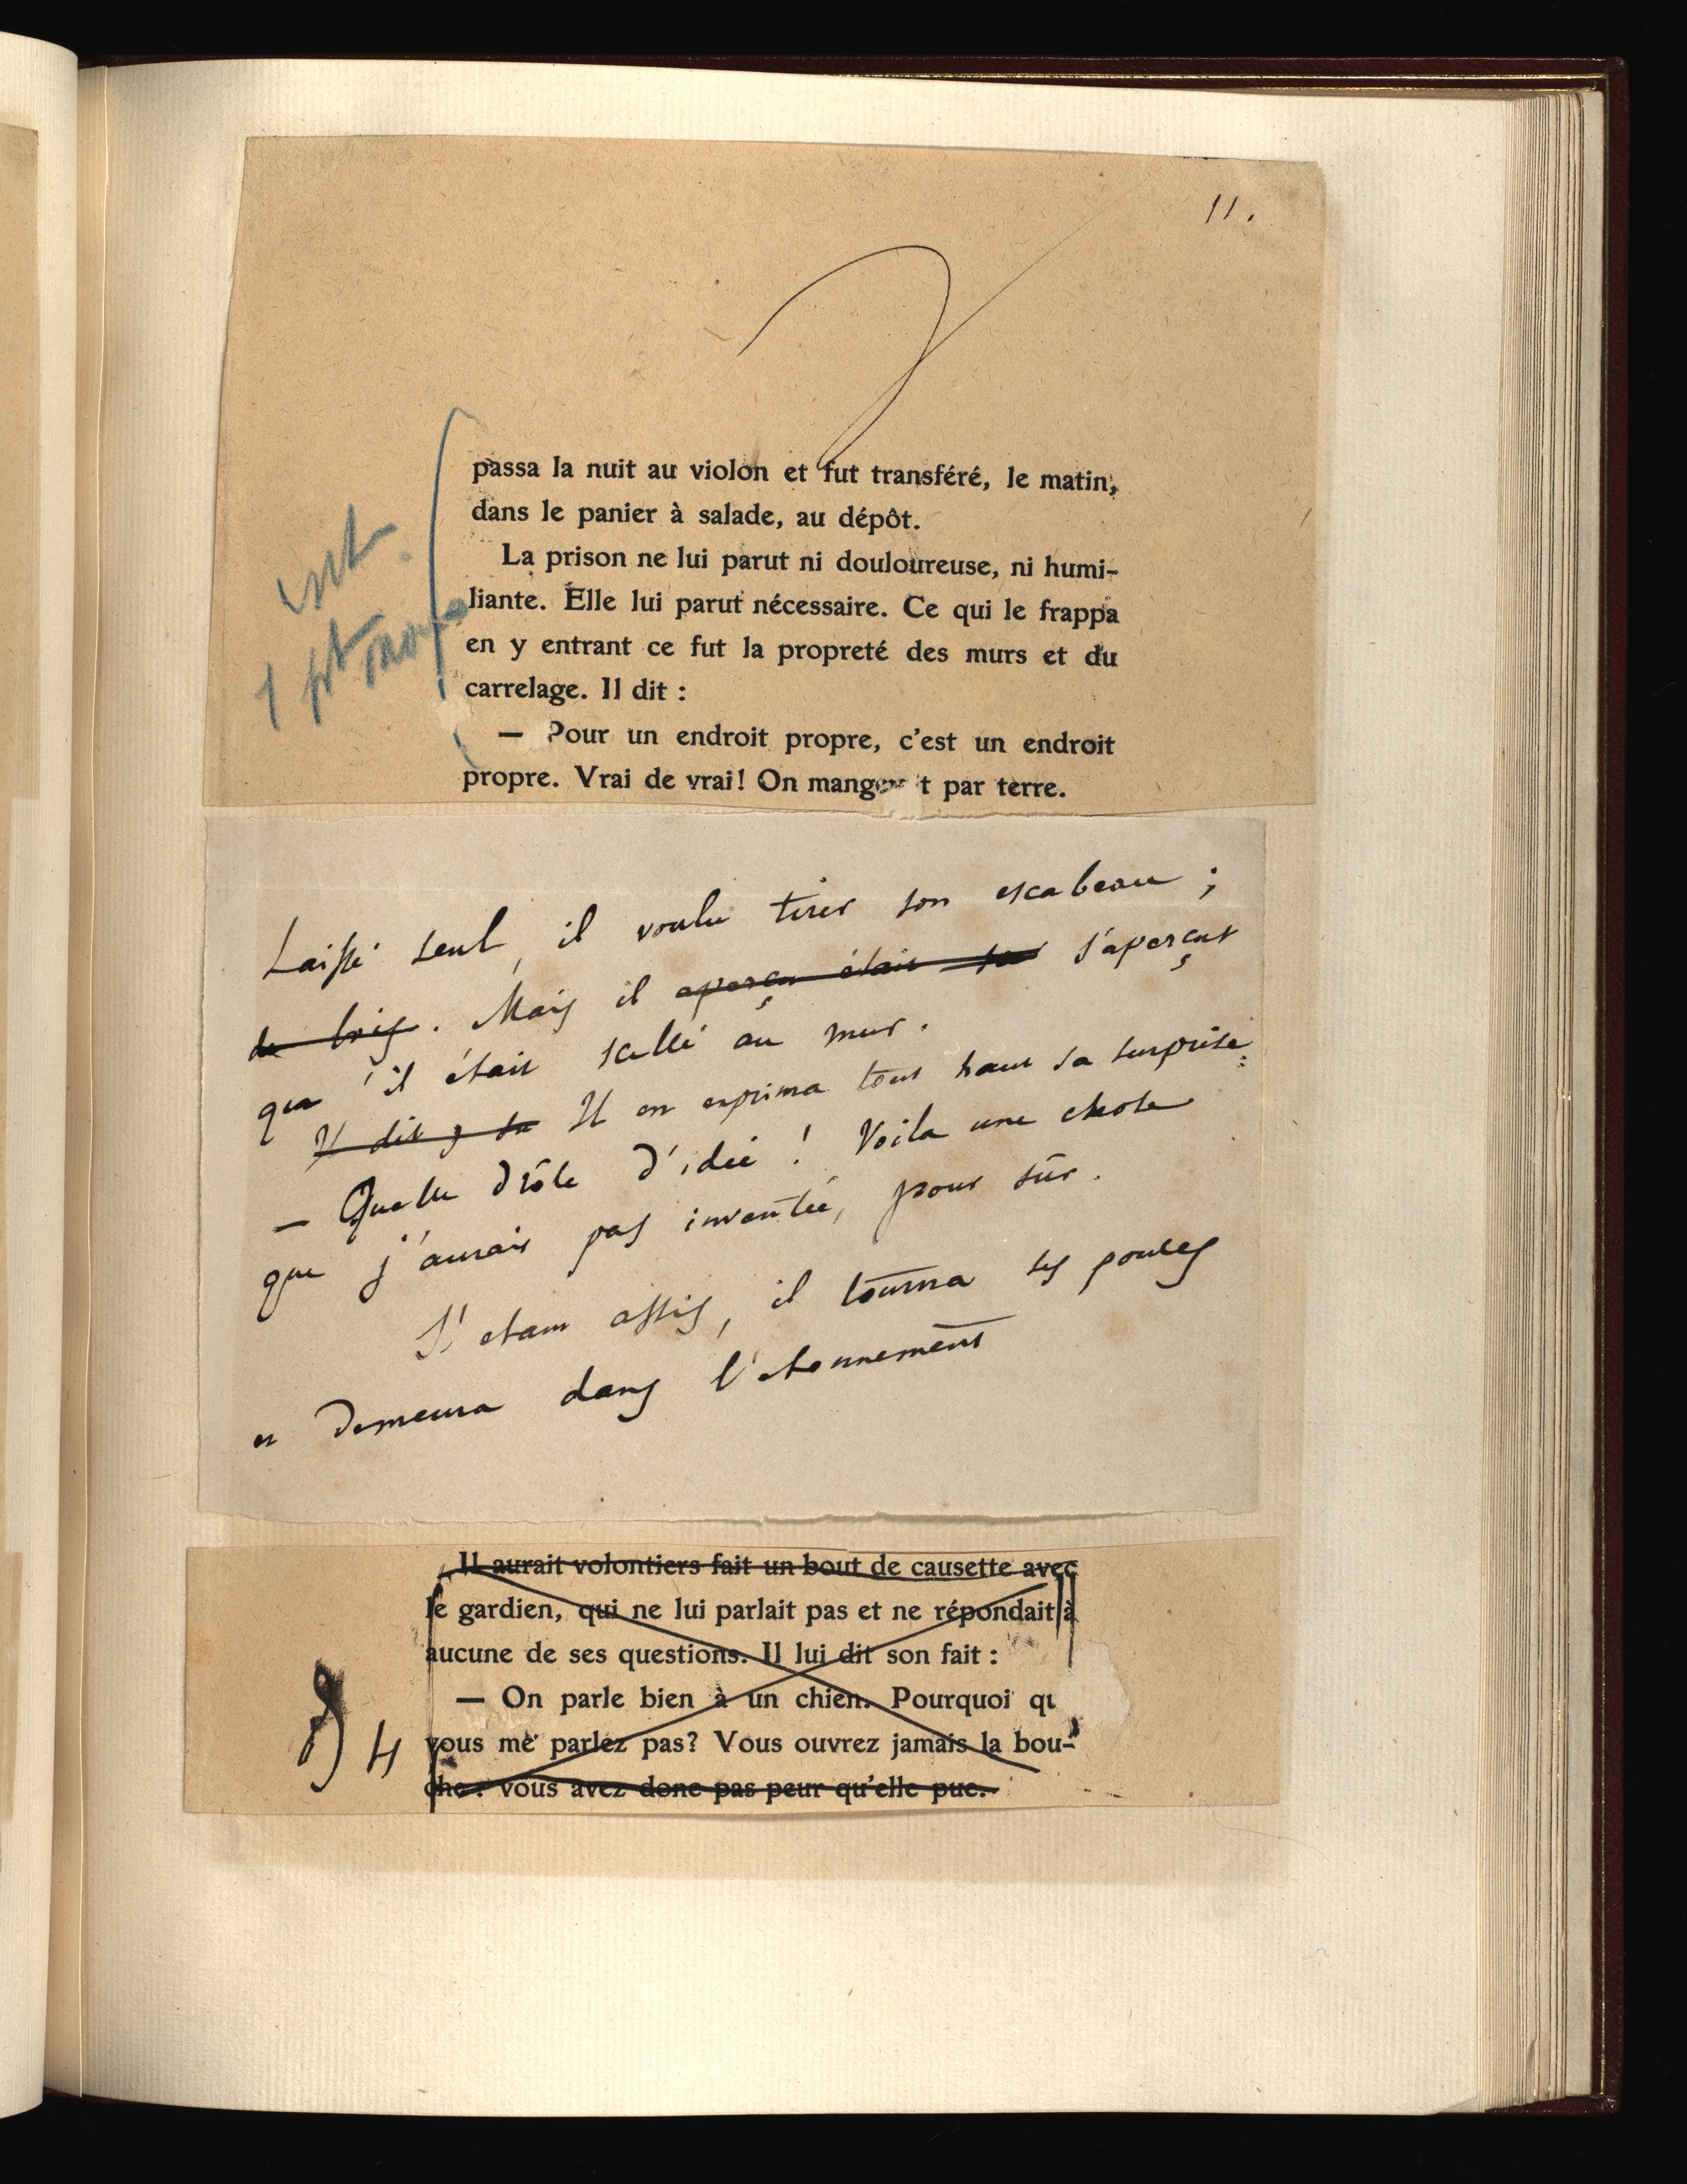 11.
passa la nuit au violon et fut transféré, le matin,
dans le panier à salade, au dépôt.
La prison ne lui parut ni douloureuse, ni humi-
liante. Elle lui parut nécessaire. Ce qui le frappa
en y entrant ce fut la propreté des murs et du
carrelage. Il dit :
— Pour un endroit propre, c'est un endroit
propre. Vrai de vrai! On mangerait par terre.
Laissé seul, il voulu tirer son escabeau ;
de bois. Mais il aperçu était s'aperçut
qu'il était scellé au mur.
Il dit, sa Il en exprima tout haut sa surprise :
— Quelle drôle d'idée ! Voila une chose
que j'aurais pas inventée, pour sûr.
S'etant assis, il tourna ses pouces
et demeura dans l'etonnement
Il aurait volontiers fait un bout de causette avec
le gardien, qui ne lui parlait pas et ne répondait à
aucune de ses questions. Il lui dit son fait :
— On parle bien à un chien. Pourquoi qu
vous me parlez pas? Vous ouvrez jamais la bou-
che : vous avez donc pas peur qu'elle pue.